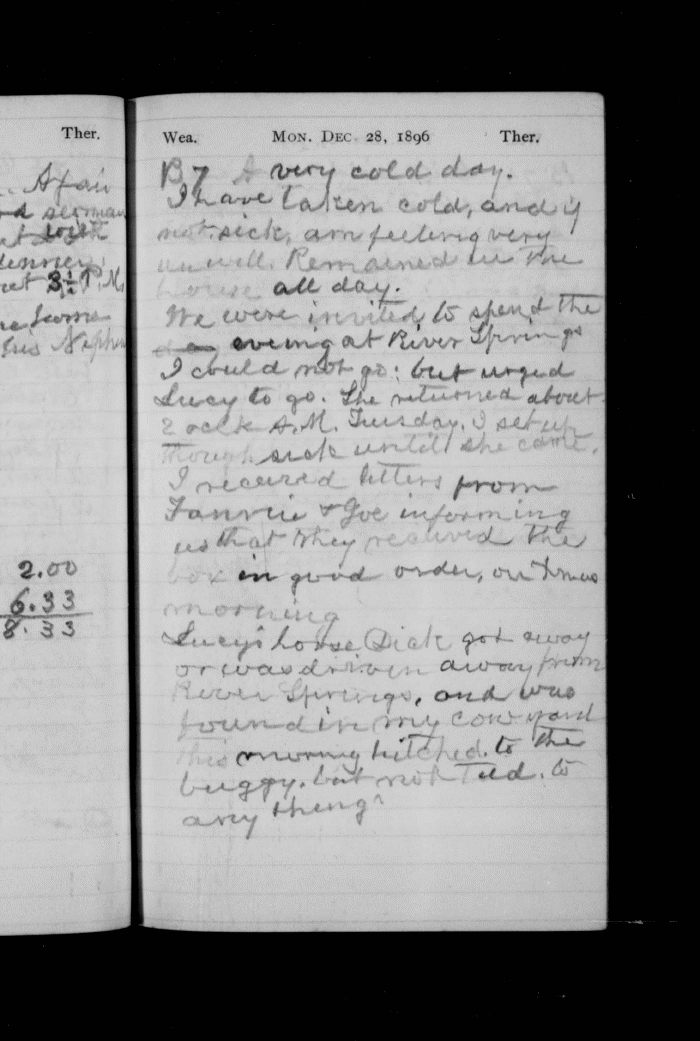 Ther.
A fair
sermon
at
3½ P. M.
2.00
6.33
8.33
Wea. MON. DEC. 28, 1896 Ther.
B 7 A very cold day.
I have taken cold, and if
not sick, am feeling very
unwell. Remained in the
house all day.
We were invited to spend the
evening at River Springs
I could not go: but urged
Lucy to go. She returned about
2 oclk A.M. Tuesday. I set up
though sick untill she came.
I received letters from
Fannie & Joe informing
us that they received the
box in good order, on Xmas
morning
Lucy's horse Dick got away
or was driven away from
River Springs, and was
found in my cow yard
this morning hitched to the
buggy. but not Tied. to
any thing